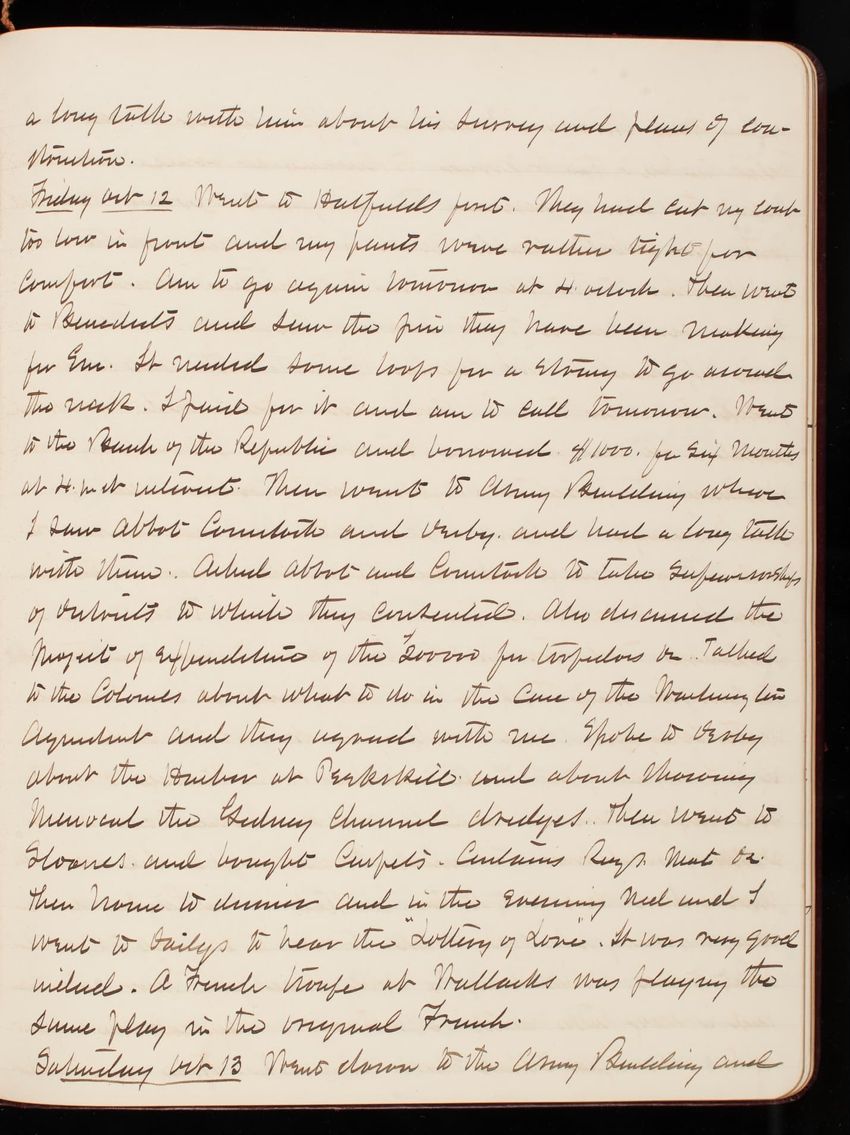 a long talk with him about his survey and plans of con-
struction.
Friday Oct 12 Went to Hatfields first. They had cut my coat
too low in front and my pants were rather tight for
comfort. Am to go again tomorrow at 4 oclock. Then went
to Benedicts and saw the pin they have been making
for Em. It needed some loops for a string to go around
the neck. I paid for it and am to call tomorrow. Went
to the Bank of the Republic and borrowed $1000. for Six Months
at 4. interest. Then went to Army Building where
I saw Abbot Comstock and Derby. and had a long talk
with them. Asked Abbot and Comstock to take Supervisorships
of districts to which they consented. Also discussed the
project of expenditure of the 200000 for torpedoes &c. Talked
to the Colonels about what to do in the Case of the Washington
Aqueduct and they agreed with me. Spoke to Derby
about the Harbor at Peekskill. and about
the Gedney Channel dredges. Then went to
Sloanes. and bought Carpets. Curtains Rugs. Mat &c.
then home to dinner and in the Evening Ned and I
went to Dailys to hear the "Lottery of Love". It was very good
indeed. A French troupe at Wallacks was playing the
same play in the original French.
Saturday Oct 13 Went down to the Army Building and